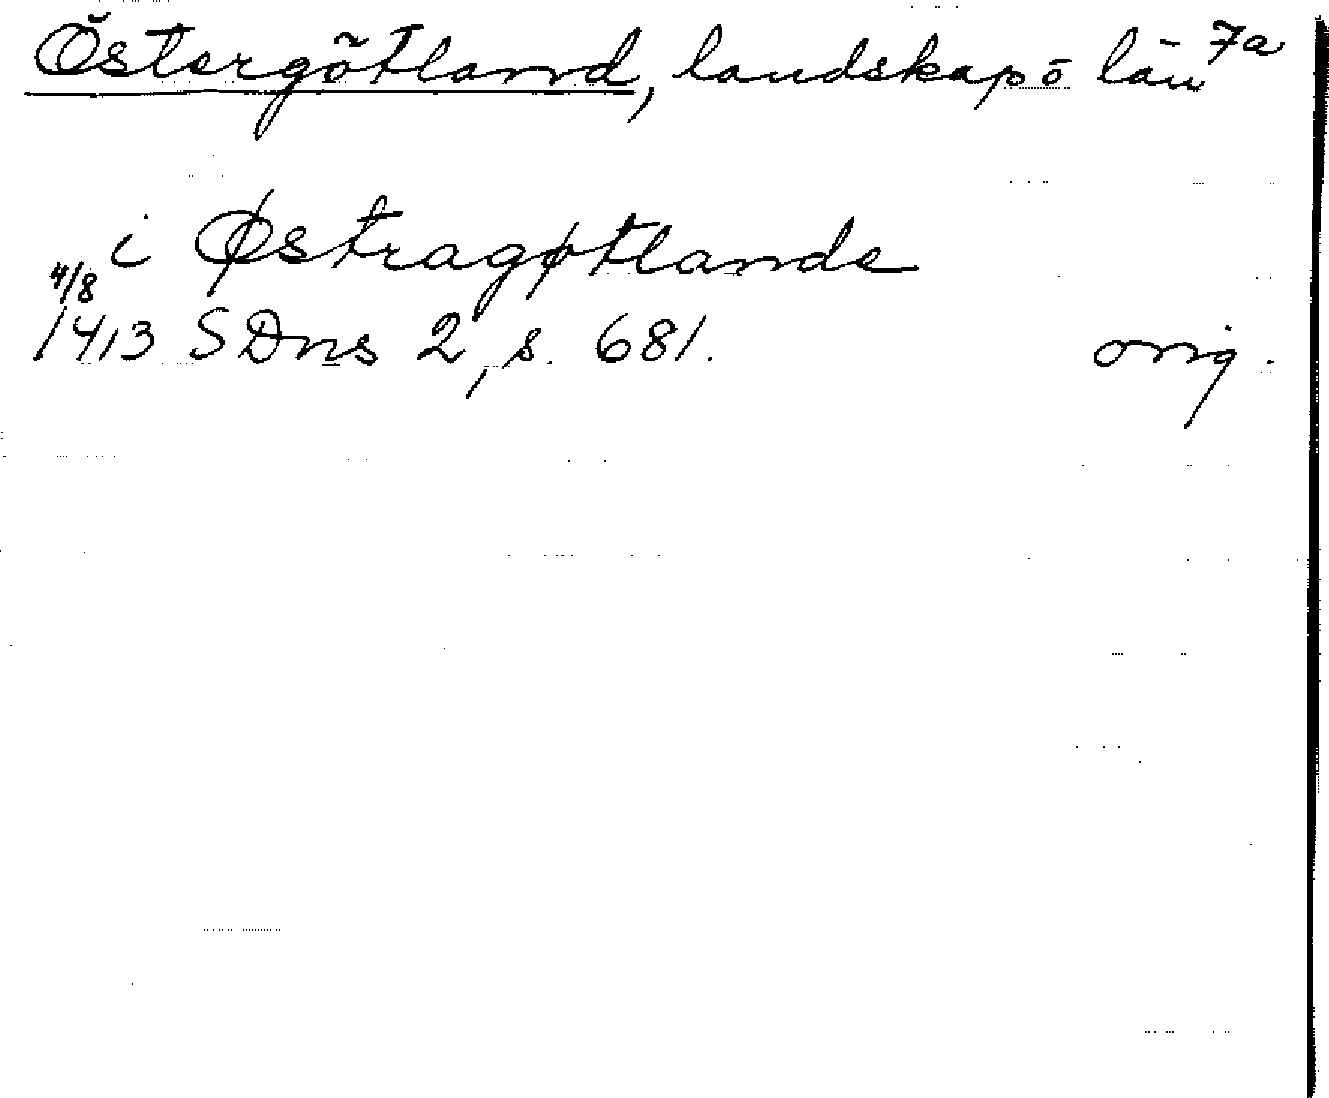 Östergötland, landskap o län 7a
i Østragøtlande
4/8
1413 SDns 2, s. 681. orig.